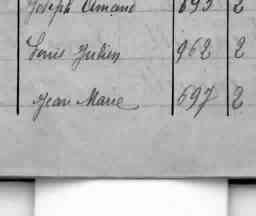 Joseph Amand 693 2
Louis Julien 962 2
Jean Marie 697 2